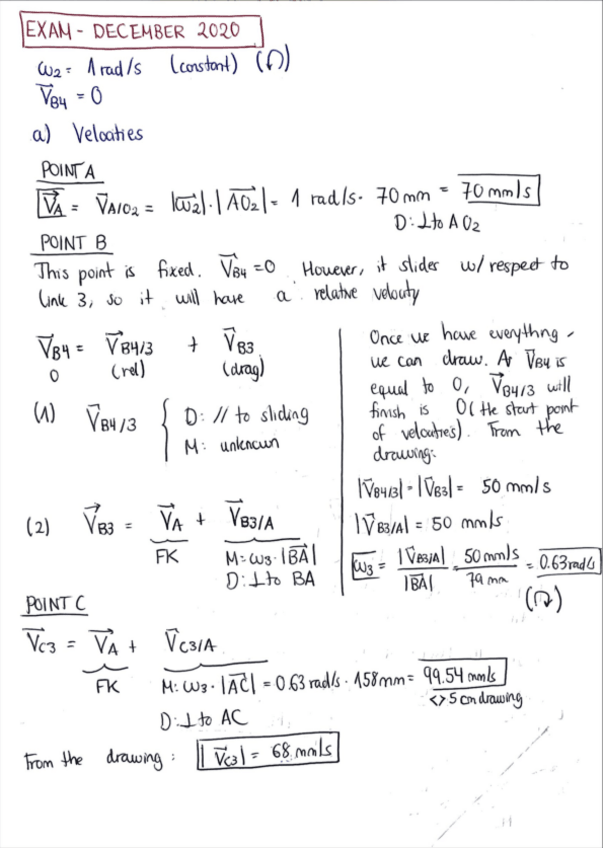 EXAM - DECEMBER 2020
ω2 = 1 rad/s (constant) (↶)
V⃗B4 = 0
a) Velocities
POINT A
V⃗A = V⃗A/O2 = |ω⃗2|·|AO⃗2| = 1 rad/s · 70 mm = 70 mm/s
D: ⊥ to AO2
POINT B
This point is fixed. V⃗B4 = 0. However, it slides w/ respect to
link 3, so it will have a relative velocity
V⃗B4 = V⃗B4/3 + V⃗B3
0 (rel) (drag)
(1) V⃗B4/3 { D: // to sliding
M: unknown
(2) V⃗B3 = V⃗A + V⃗B3/A
FK M: ω3·|BA⃗|
D: ⊥ to BA
Once we have everything,
we can draw. As V⃗B4 is
equal to 0, V⃗B4/3 will
finish is 0 (the start point
of velocities). From the
drawing:
|V⃗B4/3| = |V⃗B3| = 50 mm/s
|V⃗B3/A| = 50 mm/s
ω3 = |V⃗B3/A| / |BA⃗| = 50 mm/s / 79 mm = 0.63 rad/s
(↷)
POINT C
V⃗C3 = V⃗A + V⃗C3/A
FK M: ω3·|AC⃗| = 0.63 rad/s · 158 mm = 99.54 mm/s
<> 5 cm drawing
D: ⊥ to AC
From the drawing: |V⃗C3| = 68 mm/s